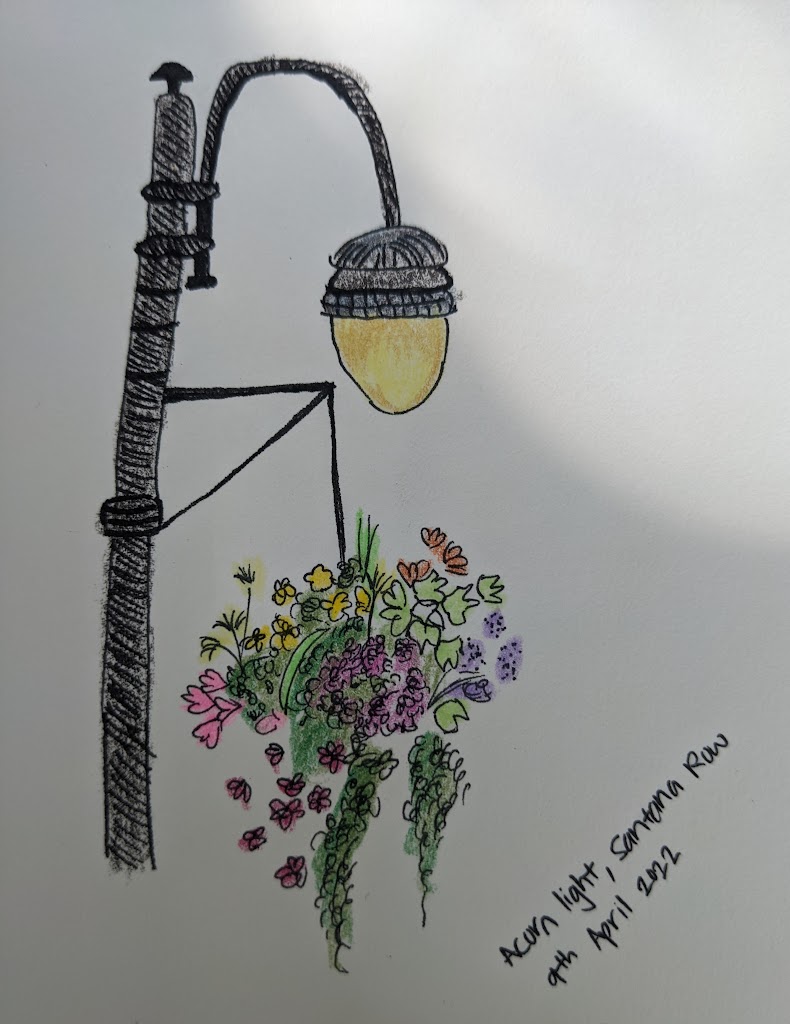 Acorn light, Santana Row
9th April 2022